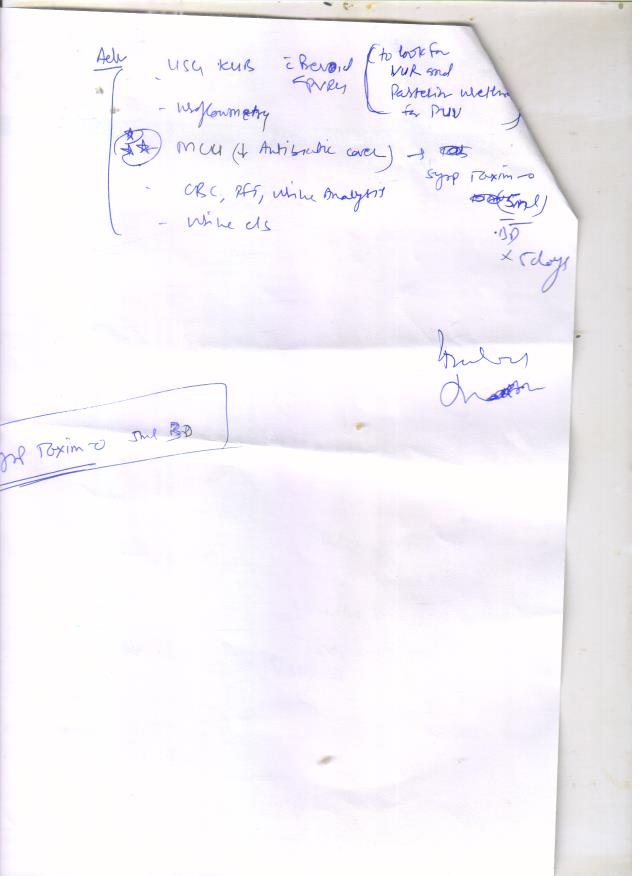 Adv
- USG KUB c̄ Prevoid & PVRU (to look for
VUR and
Posterior urethra
for PUV)
- Uroflowmetry
MCU (↓ Antibiotic cover) →
syrp Taxim-o
(5ml)
BD
x 5 days
- CBC, RFT, Urine Analysis
- Urine c/s
syrp Taxim-o 5ml BD